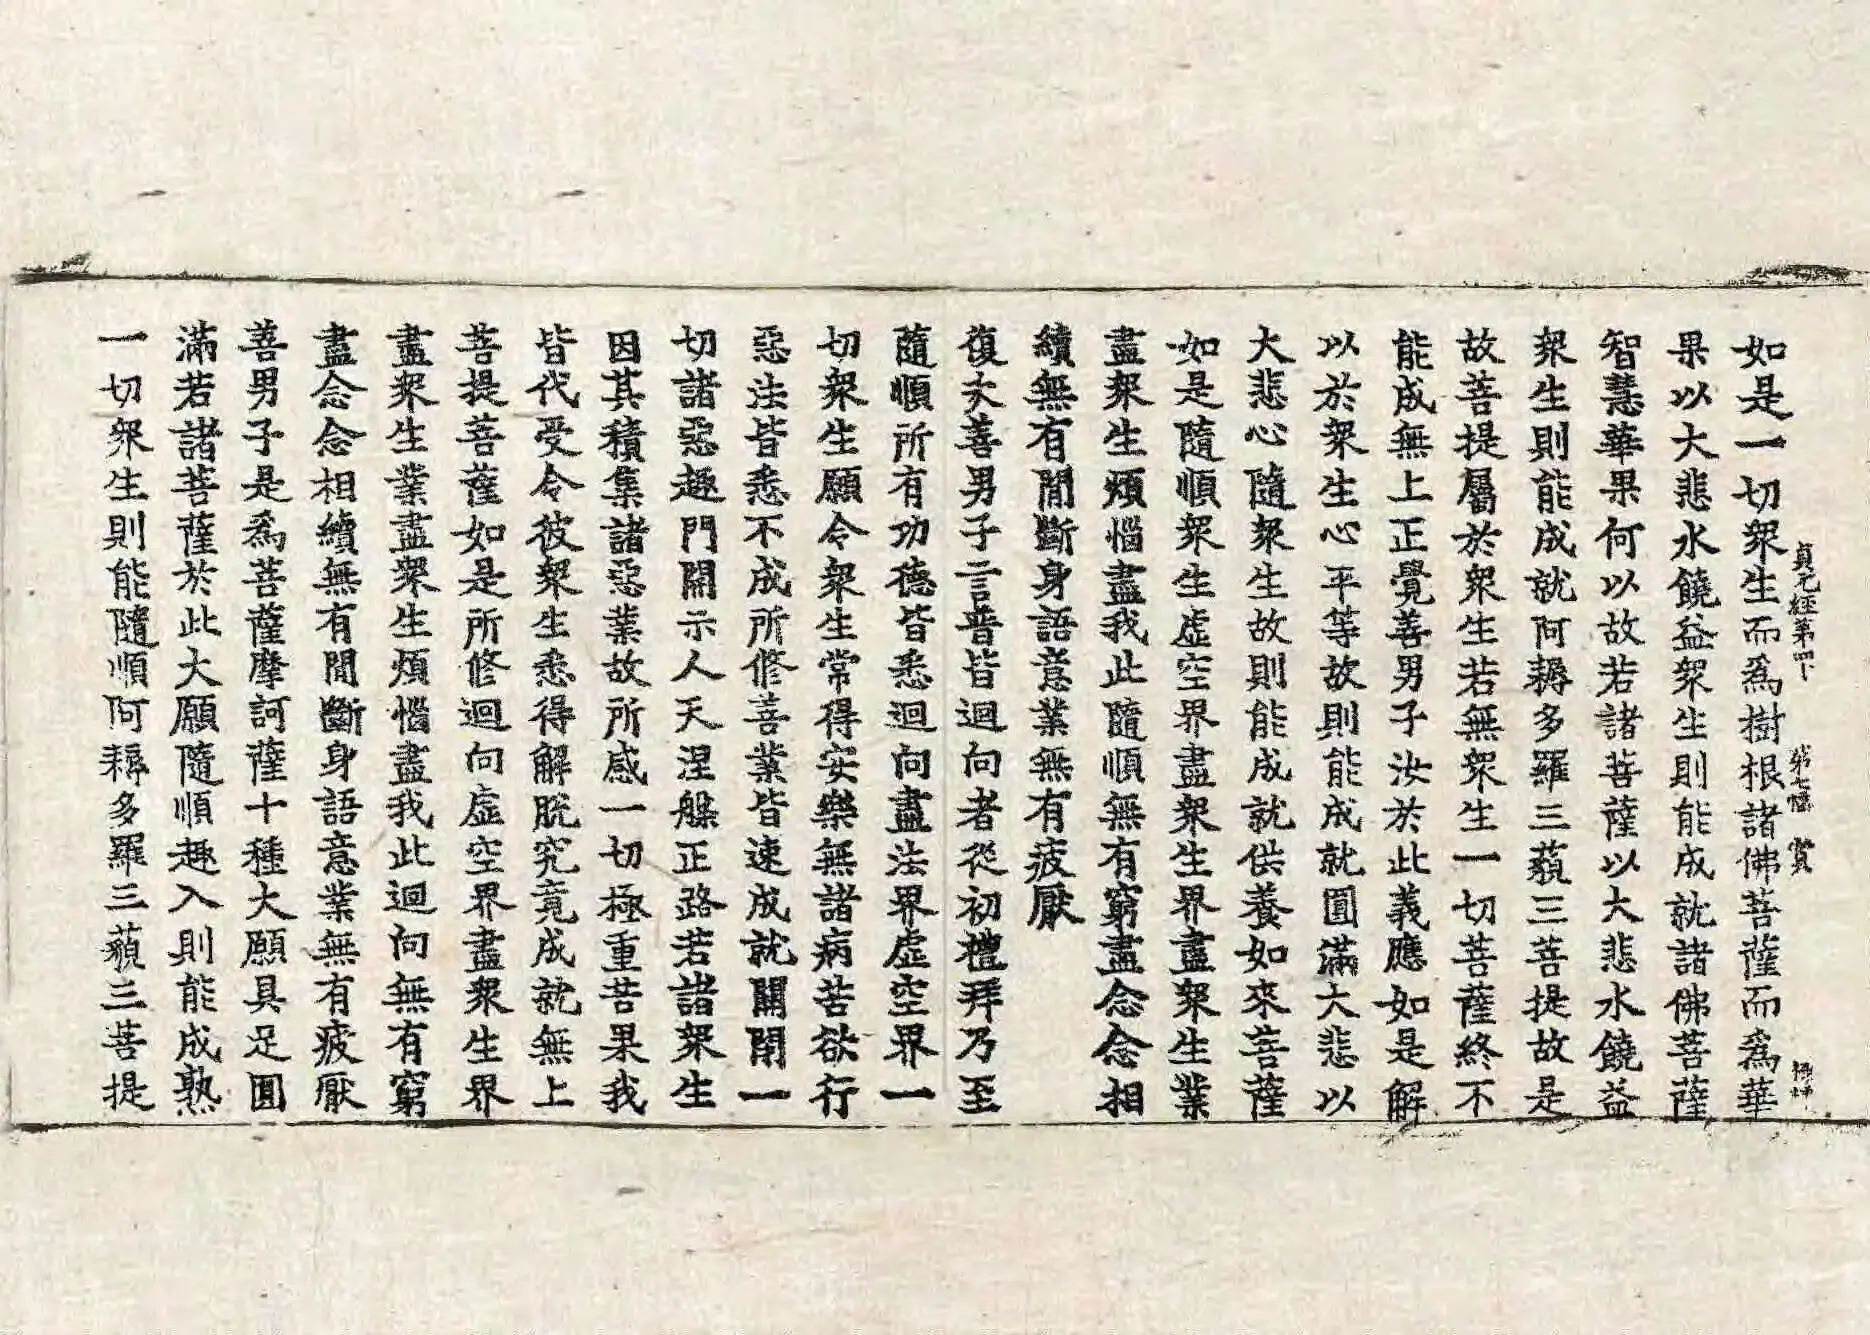 貞元經第四下 第七幅 賞
如是一切衆生而爲樹根諸佛菩薩而爲華
果以大悲水饒益衆生則能成就諸佛菩薩
智慧華果何以故若諸菩薩以大悲水饒益
衆生則能成就阿耨多羅三藐三菩提故是
故菩提屬於衆生若無衆生一切菩薩終不
能成無上正覺善男子汝於此義應如是解
以於衆生心平等故則能成就圓滿大悲以
大悲心隨衆生故則能成就供養如來菩薩
如是隨順衆生虛空界盡衆生界盡衆生業
盡衆生煩惱盡我此隨順無有窮盡念念相
續無有閒斷身語意業無有疲厭
復次善男子言普皆迴向者從初禮拜乃至
隨順所有功德皆悉迴向盡法界虛空界一
切衆生願令衆生常得安樂無諸病苦欲行
惡法皆悉不成所修善業皆速成就關閉一
切諸惡趣門開示人天涅槃正路若諸衆生
因其積集諸惡業故所感一切極重苦果我
皆代受令彼衆生悉得解脫究竟成就無上
菩提菩薩如是所修迴向虛空界盡衆生界
盡衆生業盡衆生煩惱盡我此迴向無有窮
盡念念相續無有閒斷身語意業無有疲厭
善男子是爲菩薩摩訶薩十種大願具足圓
滿若諸菩薩於此大願隨順趣入則能成熟
一切衆生則能隨順阿耨多羅三藐三菩提